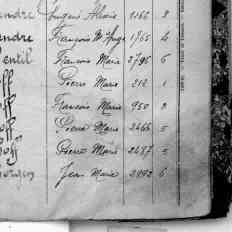 andre Eugène Alexis 1166 2
andre François M. Hugo 1765 4
Gentil François Marie 2796 6
off Pierre Marie 212 1
off François Marie 950 2
off Pierre Marie 2466 5
off Pierre Marie 2487 5
Jean Marie 2892 6